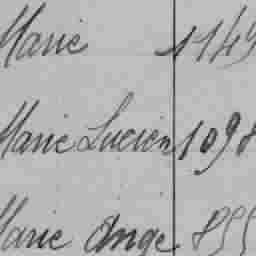 Marie 1149
Marie Lucien 1098
Marie Ange 855